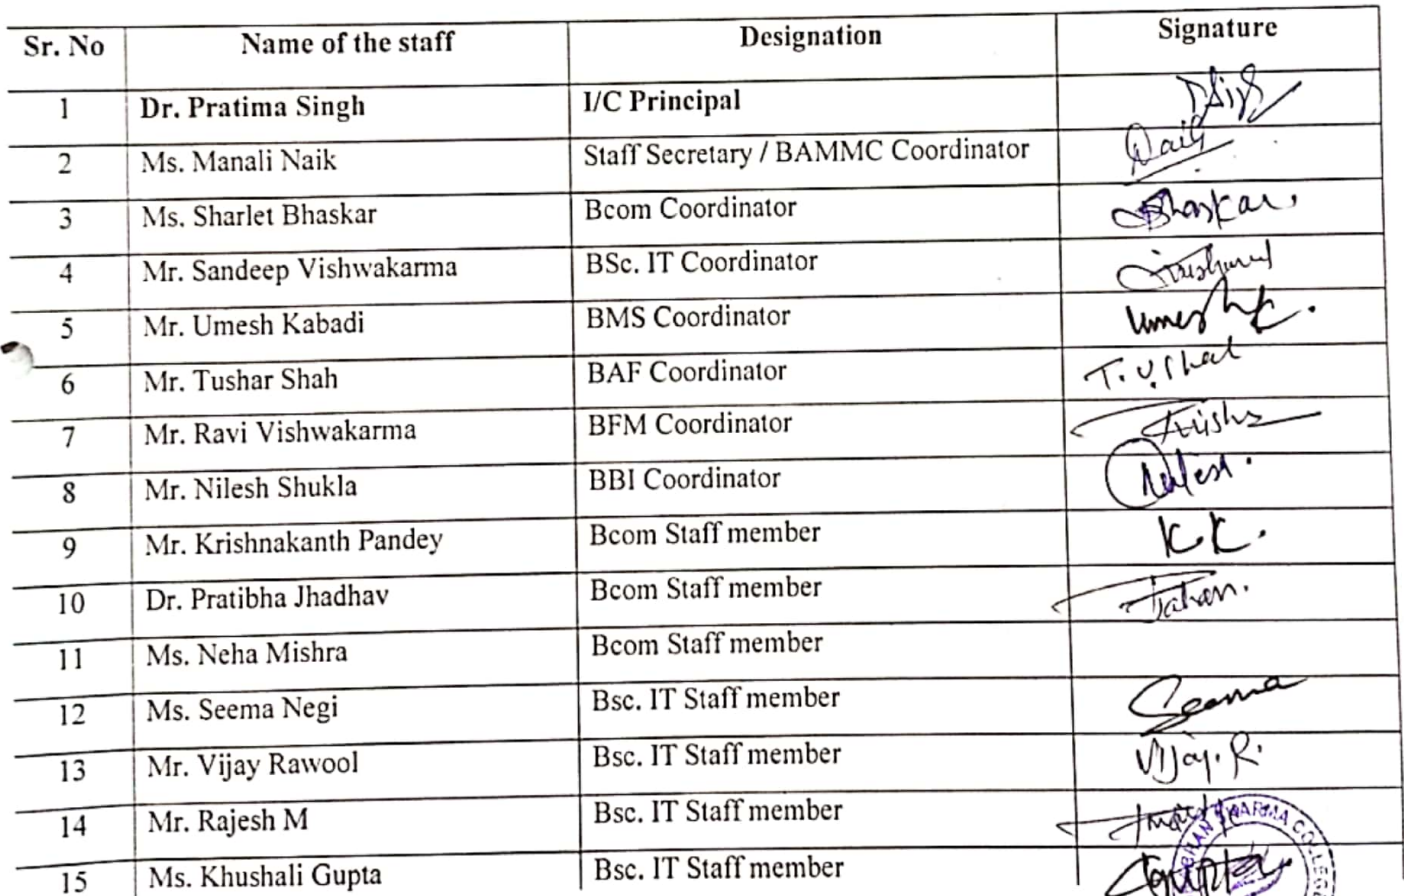 Sr. No Name of the staff Designation Signature
1 Dr. Pratima Singh I/C Principal
2 Ms. Manali Naik Staff Secretary / BAMMC Coordinator Naik
3 Ms. Sharlet Bhaskar Bcom Coordinator Bhaskar.
4 Mr. Sandeep Vishwakarma BSc. IT Coordinator
5 Mr. Umesh Kabadi BMS Coordinator
6 Mr. Tushar Shah BAF Coordinator T. V. Shah
7 Mr. Ravi Vishwakarma BFM Coordinator
8 Mr. Nilesh Shukla BBI Coordinator Nilesh.
9 Mr. Krishnakanth Pandey Bcom Staff member K.K.
10 Dr. Pratibha Jhadhav Bcom Staff member
11 Ms. Neha Mishra Bcom Staff member
12 Ms. Seema Negi Bsc. IT Staff member Seema
13 Mr. Vijay Rawool Bsc. IT Staff member Vijay. R.
14 Mr. Rajesh M Bsc. IT Staff member
SHARMA COLLEGE
15 Ms. Khushali Gupta Bsc. IT Staff member Gupta